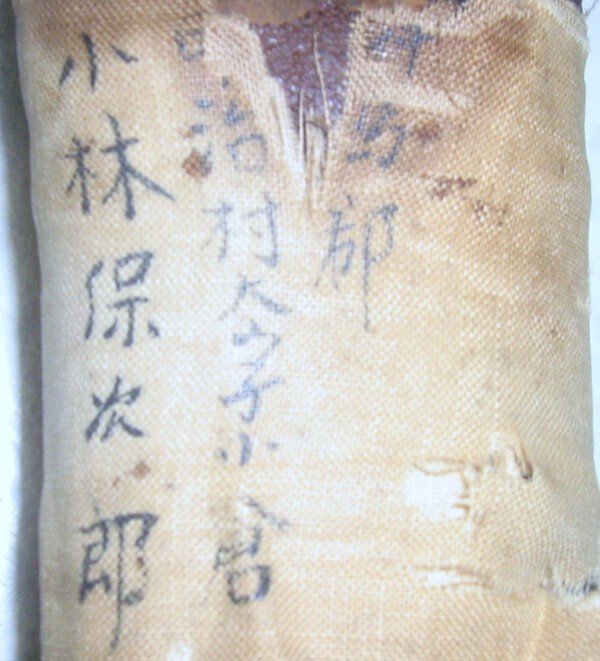 野郡
治村大字小倉
小林保次郎